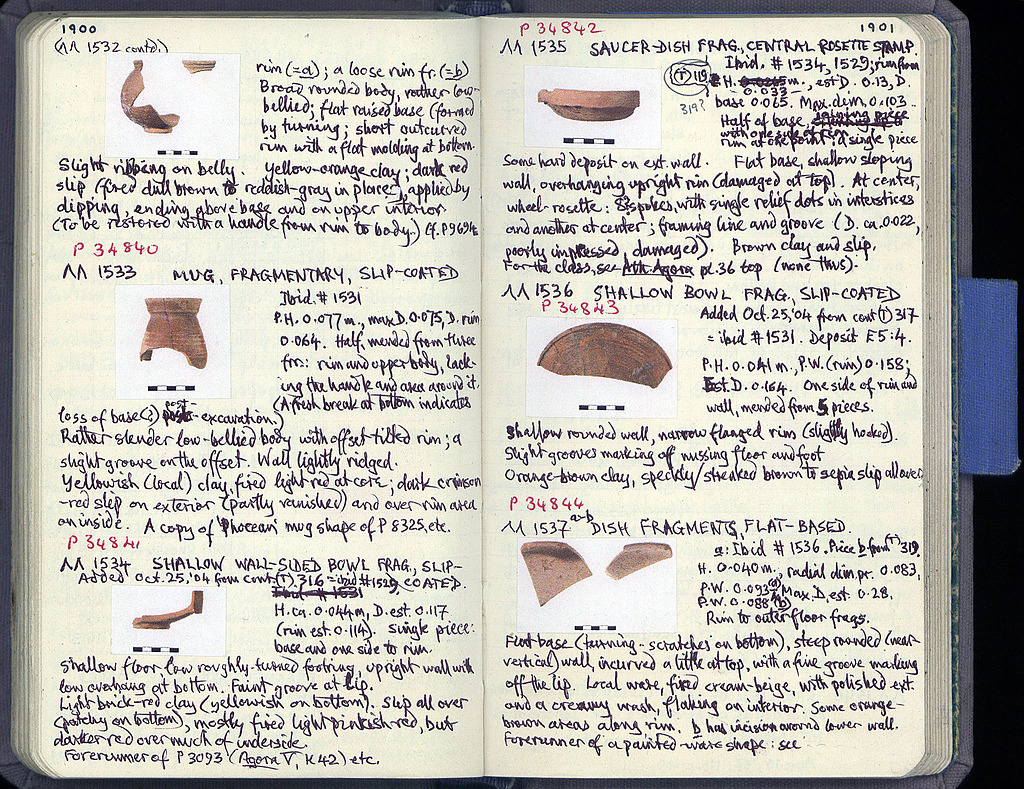 1900
(ΛΛ 1532 contd.)
rim (=a); a loose rim fr. (=b)
Broad rounded body, rather low-
bellied; flat raised base (formed
by turning; short outcurved
rim with a flat molding at bottom.
Slight ribbing on belly. Yellow-orange clay; dark red
slip (fired dull brown to reddish-gray in places), applied by
dipping, ending above base and on upper interior.
(To be restored with a handle from rim to body.) Cf. P9694
P 34840
ΛΛ 1533 MUG, FRAGMENTARY, SLIP-COATED
Ibid. # 1531
P.H. 0.077 m., max D. 0.075, D. rim
0.064. Half, mended from three
frs: rim and upper body, lack-
ing the handle and area around it.
(A fresh break at bottom indicates
loss of base(?) post-excavation.)
Rather slender low-bellied body with offset tilted rim; a
slight groove on the offset. Wall lightly ridged.
Yellowish (local) clay, fired light red at core; dark crimson
-red slip on exterior (partly vanished) and over rim area
on inside. A copy of 'Phocean' mug shape of P 8325, etc.
P 34841
ΛΛ 1534 SHALLOW WALL-SIDED BOWL FRAG., SLIP-
Added Oct. 25, '04 from cont. (T) 316 = ibid # 1529, COATED.
Ibid. # 1531
H. ca. 0.044 m, D. est. 0.117
(rim est. 0.114). Single piece:
base and one side to rim.
Shallow floor, low roughly-turned footring, upright wall with
low overhang at bottom. Faint groove at lip.
Light brick-red clay (yellowish on bottom). Slip all over
(patchy on bottom), mostly fired light pinkish-red, but
darker red over much of underside.
Forerunner of P 3093 (Agora V, K 42) etc.
1901
P 34842
ΛΛ 1535 SAUCER-DISH FRAG., CENTRAL ROSETTE STAMP.
(T) 119
319?
Ibid. # 1534, 1529; rim from
H. 0.0265 m., est D. 0.13, D.
0.033
base 0.065. Max. dim, 0.103.
Half of base, joining piece
with one side of rim.
rim at one point: a single piece
Some hard deposit on ext. wall. Flat base, shallow sloping
wall, overhanging upright rim (damaged at top). At center,
wheel-rosette: 8? spokes, with single relief dots in interstices
and another at center; framing line and groove (D. ca. 0.022,
poorly impressed, damaged). Brown clay and slip.
For the class, see Ath. Agora pl. 36 top (none thus).
ΛΛ 1536 SHALLOW BOWL FRAG., SLIP-COATED
P 34843
Added Oct. 25, '04 from cont (T) 317
= ibid # 1531. Deposit E 5:4.
P.H. 0.041 m., P.W. (rim) 0.158;
Est. D. 0.164. One side of rim and
wall, mended from 5 pieces.
Shallow rounded wall, narrow flanged rim (slightly hooked).
Slight grooves marking off missing floor and foot
Orange-brown clay, speckly/streaked brown to sepia slip all over.
P 34844
ΛΛ 1537 a-b DISH FRAGMENTS, FLAT-BASED.
a: Ibid # 1536, Piece b from (T) 319.
H. 0.040 m., radial dim. pr. 0.083,
P.W. 0.093 (a) Max. D. est. 0.28,
P.W. 0.088 (b)
Rim to outer floor frags.
Flat base (turning-scratches on bottom), steep rounded (near-
vertical) wall, incurved a little at top, with a fine groove marking
off the lip. Local ware, fired cream-beige, with polished ext.
and a creamy wash, flaking on interior. Some orange-
brown areas along rim. b has incision around lower wall.
Forerunner of a painted-ware shape: see